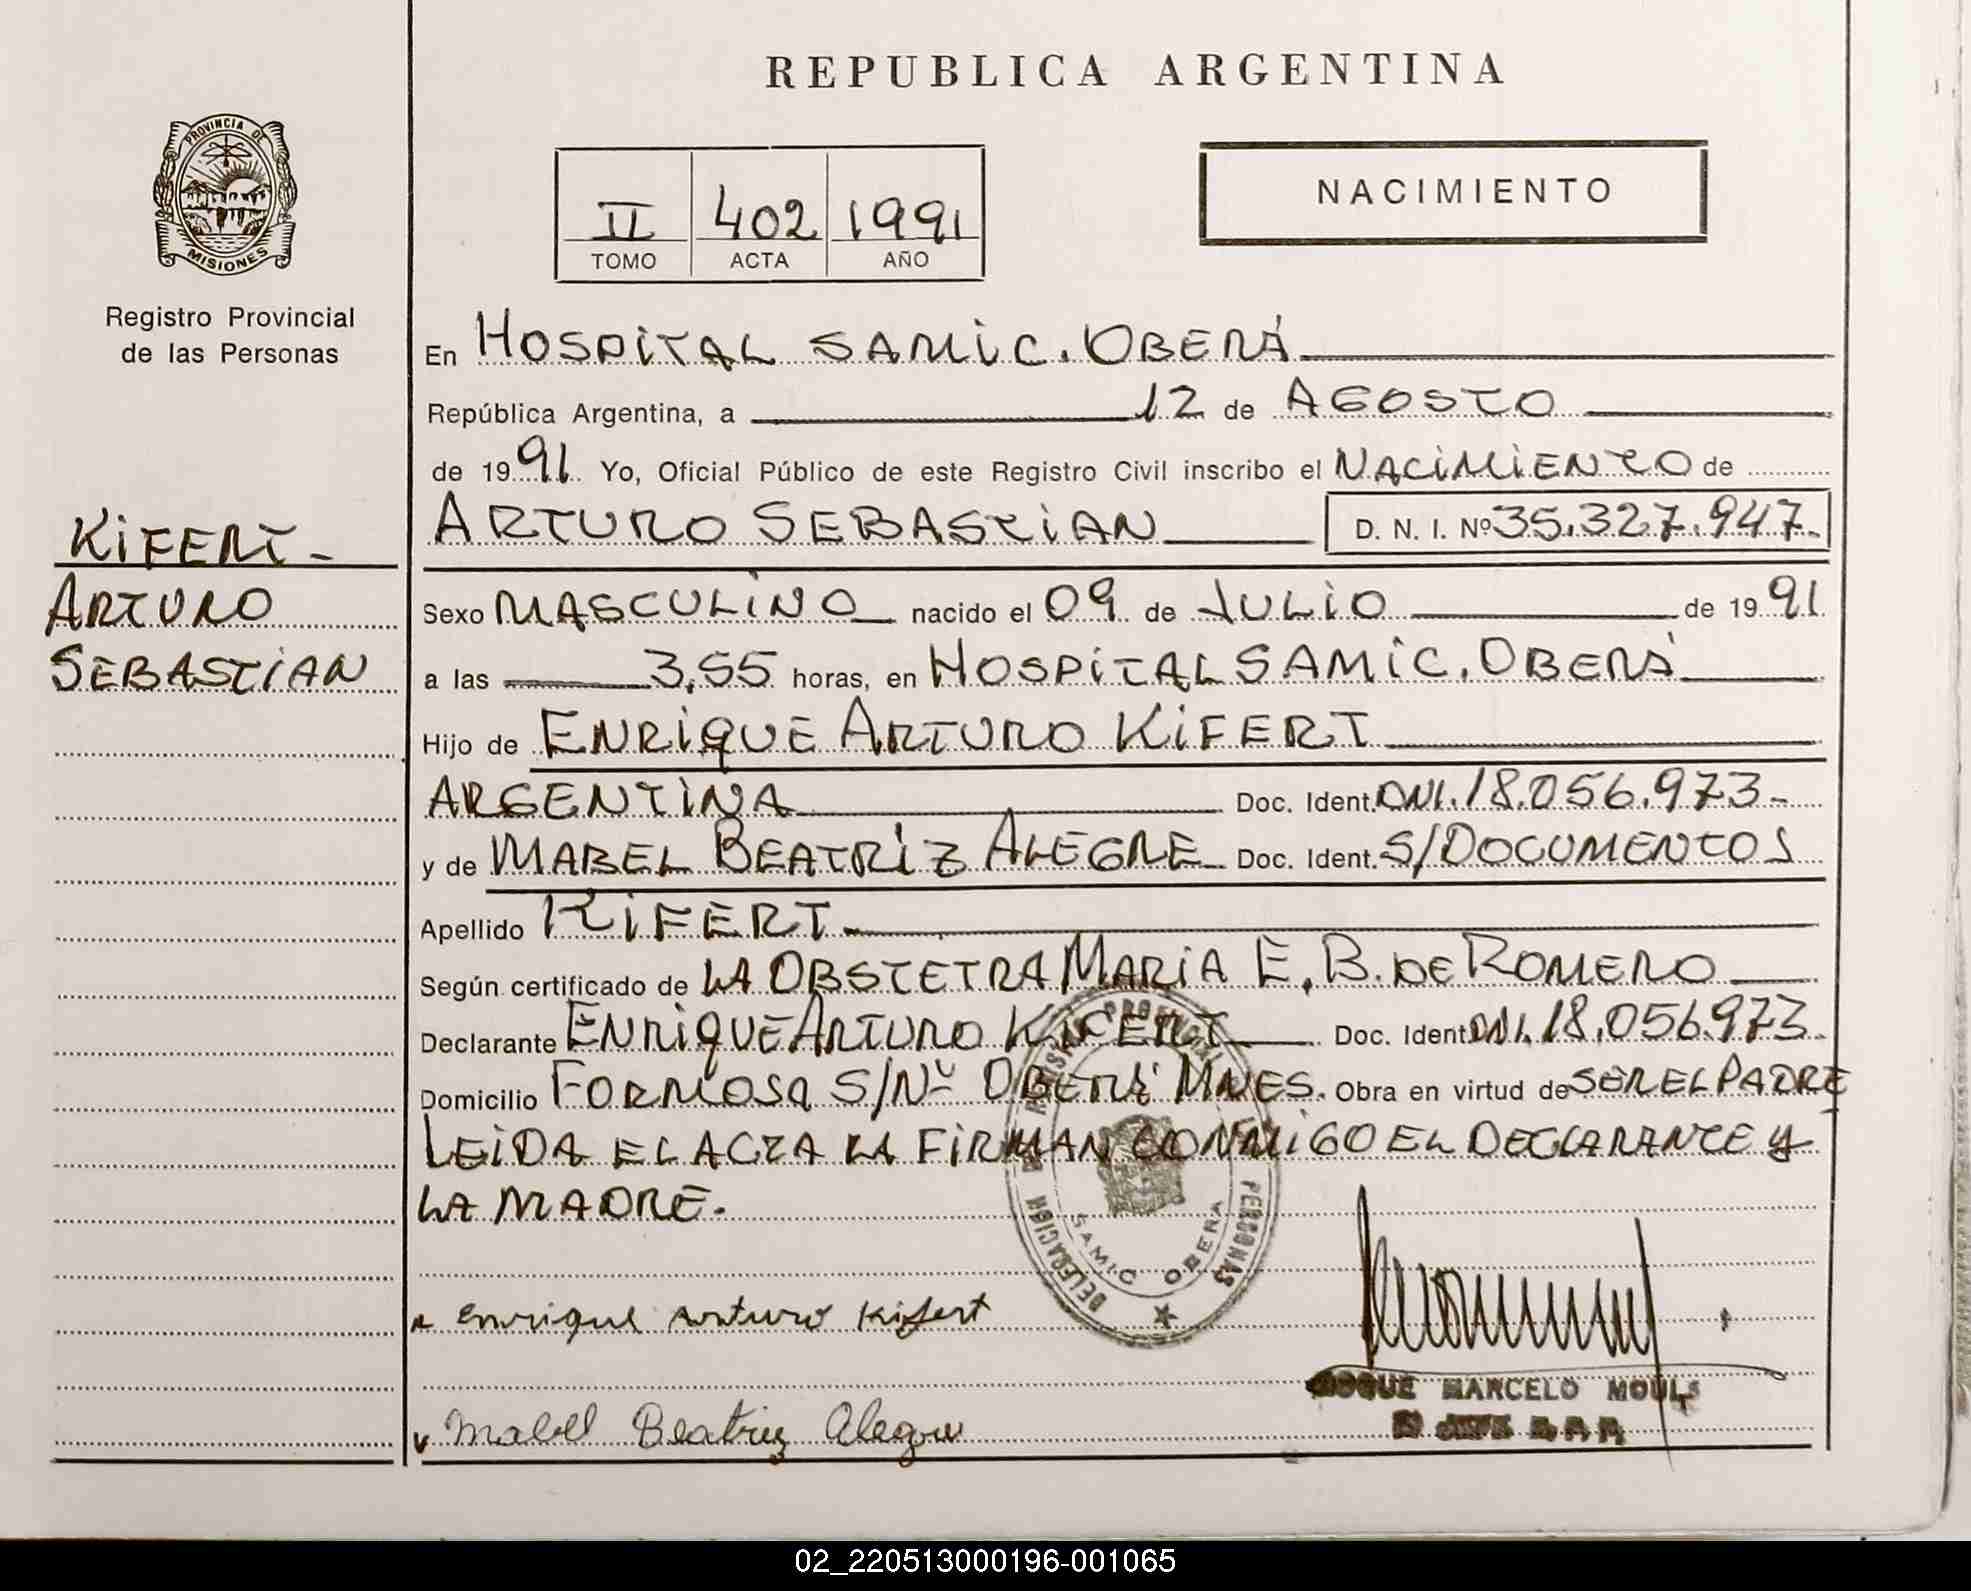 REPUBLICA ARGENTINA
PROVINCIA DE
MISIONES
Registro Provincial
de las Personas
II 402 1991
TOMO ACTA AÑO
NACIMIENTO
En HOSPITAL SAMIC. OBERÁ
República Argentina, a 12 de AGOSTO
de 1991 Yo, Oficial Público de este Registro Civil inscribo el NACIMIENTO de
KIFERT-
ARTURO
SEBASTIAN
ARTURO SEBASTIAN D. N. I. Nº 35.327.947.-
Sexo MASCULINO nacido el 09 de JULIO de 1991
a las 3,55 horas, en HOSPITAL SAMIC. OBERÁ
Hijo de ENRIQUE ARTURO KIFERT
ARGENTINA Doc. Ident. DNI. 18.056.973-
y de MABEL BEATRIZ ALEGRE Doc. Ident. S/DOCUMENTOS
Apellido KIFERT
Según certificado de LA OBSTETRA MARIA E. B. DE ROMERO
Declarante ENRIQUE ARTURO KIFERT Doc. Ident. DNI. 18.056.973-
Domicilio FORMOSA S/Nº OBERÁ MNES. Obra en virtud de SER EL PADRE
LEIDA EL ACTA LA FIRMAN CONMIGO EL DECLARANTE Y
LA MADRE.
DELEGACION PROVINCIAL PERSONAS
SAMIC OBERA
Enrique Arturo Kifert
MARCELO
Mabel Beatriz Alegre
02_220513000196-001065